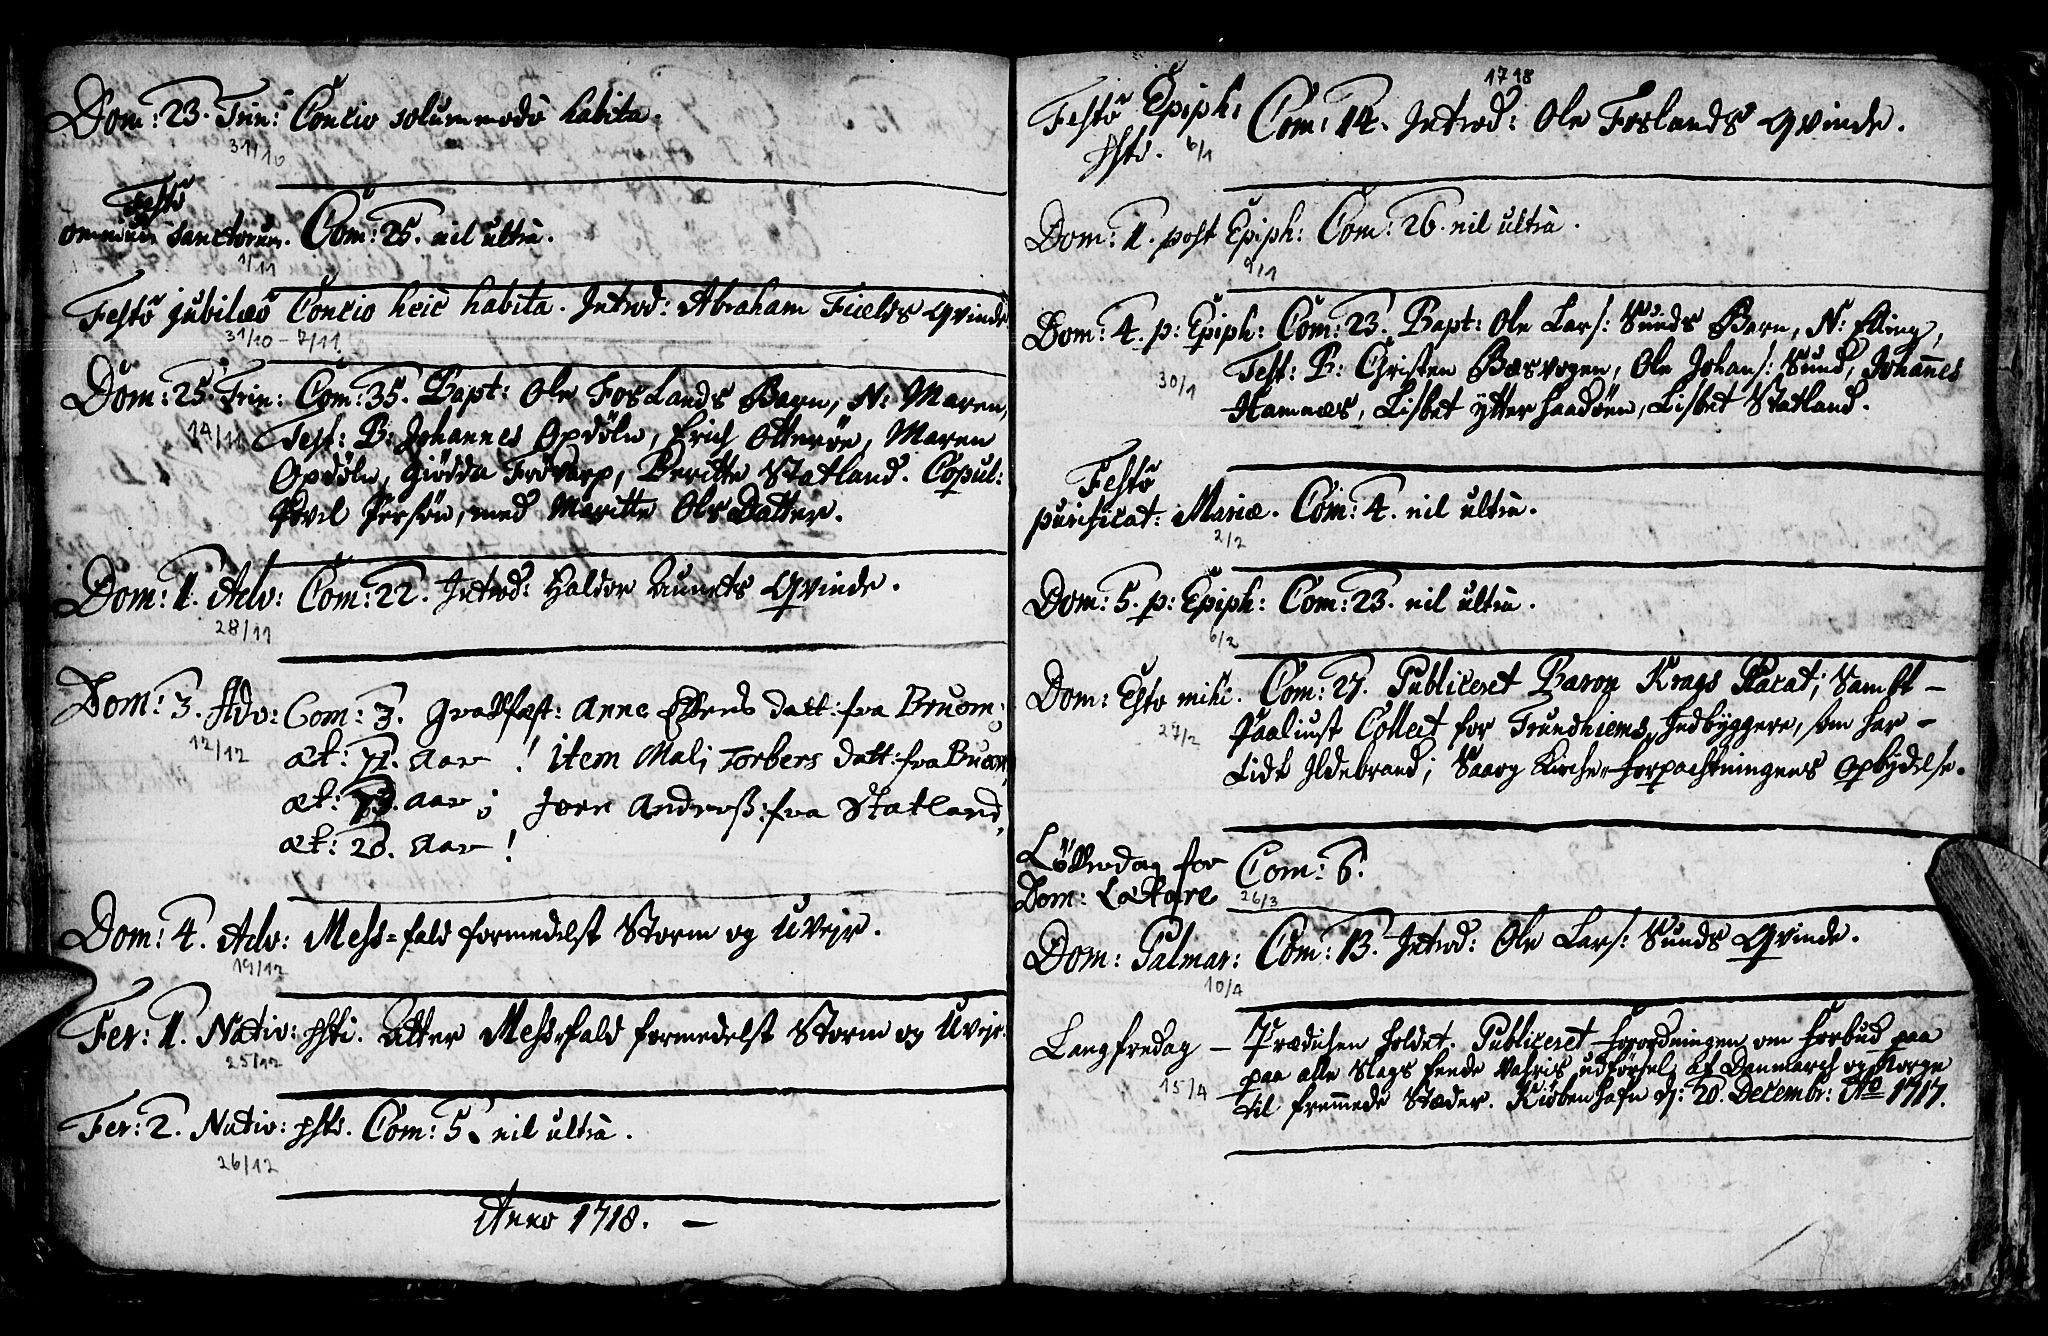 Dom: 23. Trin: Concio solummodo habita.
31/10
Festo
omnium sanctorum. Com: 25. nil ultra.
1/11
Festo jubilæo Concio heic habita. Introd: Abraham Fields Qvinde
31/10 - 7/11
Dom: 25 Trin: Com: 35. Bapt: Ole Foslands Barn, N: Maren,
14/11 Test: B: Johannes Opdöln, Erich Otterøe, Maren
Opdöln, Giødda Fosdarp, Beritte Statland. Copul:
Povel Persön, med Maritte Ols Datter.
Dom: 1. Adv: Com: 22. Introd: Haldor Aunets Qvinde.
28/11
Dom: 3. Adv: Com: 3. Graffæst: Anne datt: fra Bruem:
12/12 æt: 71. Aar! item Mali Torbers datt: fra
æt: Aar; Joen Anderß: fra Statland,
æt: 20. Aar!
Dom: 4. Adv: Mess-fald formedelst Storm og Uvejr.
19/12
Fer: 1. Nativ: Xsti. atter Mess-fald formedelst Storm og Uvejr.
25/12
Fer: 2. Nativ: Xsti. Com: 5. nil ultra.
26/12
Anno 1718. —
1718
Festo Epiph: Com: 14. Introd: Ole Foslands Qvinde.
Xsti. 6/1
Dom: 1. post Epiph: Com: 26. nil ultra.
9/1
Dom: 4. p: Epiph: Com: 23. Bapt: Ole Lars: Sunds Barn, N: Elling,
30/1 Test: B: Christen Bæsvogen, Ole Johans: Sund, Johannes
Hamnæs, Lisbet ytter haadöen, Lisbet Statland.
Festo
purificat: Mariæ. Com: 4. nil ultra.
2/2
Dom: 5. p: Epiph: Com: 23. nil ultra.
6/2
Dom: Esto mihi. Com: 27. Publiceret Baron Krags Placat; Sambt -
27/2 Paaliust Collect for Trundhiems Indbyggere, som har -
Lidt Ildebrand; Saaog Kirche-forpachtningens opbydelse.
Löffverdag for Com: 6.
Dom: Lætare 26/3
Dom: Palmar: Com: 13. Introd: Ole Lars: Sunds Qvinde.
10/4
Langfredag - Prædichen holdet. Publiceret forordningen om forbud paa
15/4 paa alle Slags udförsel af Danmarch og Norge
til fremmede Stæder. Kiøbenhafn d: 20. Decembr: Ao 1717.